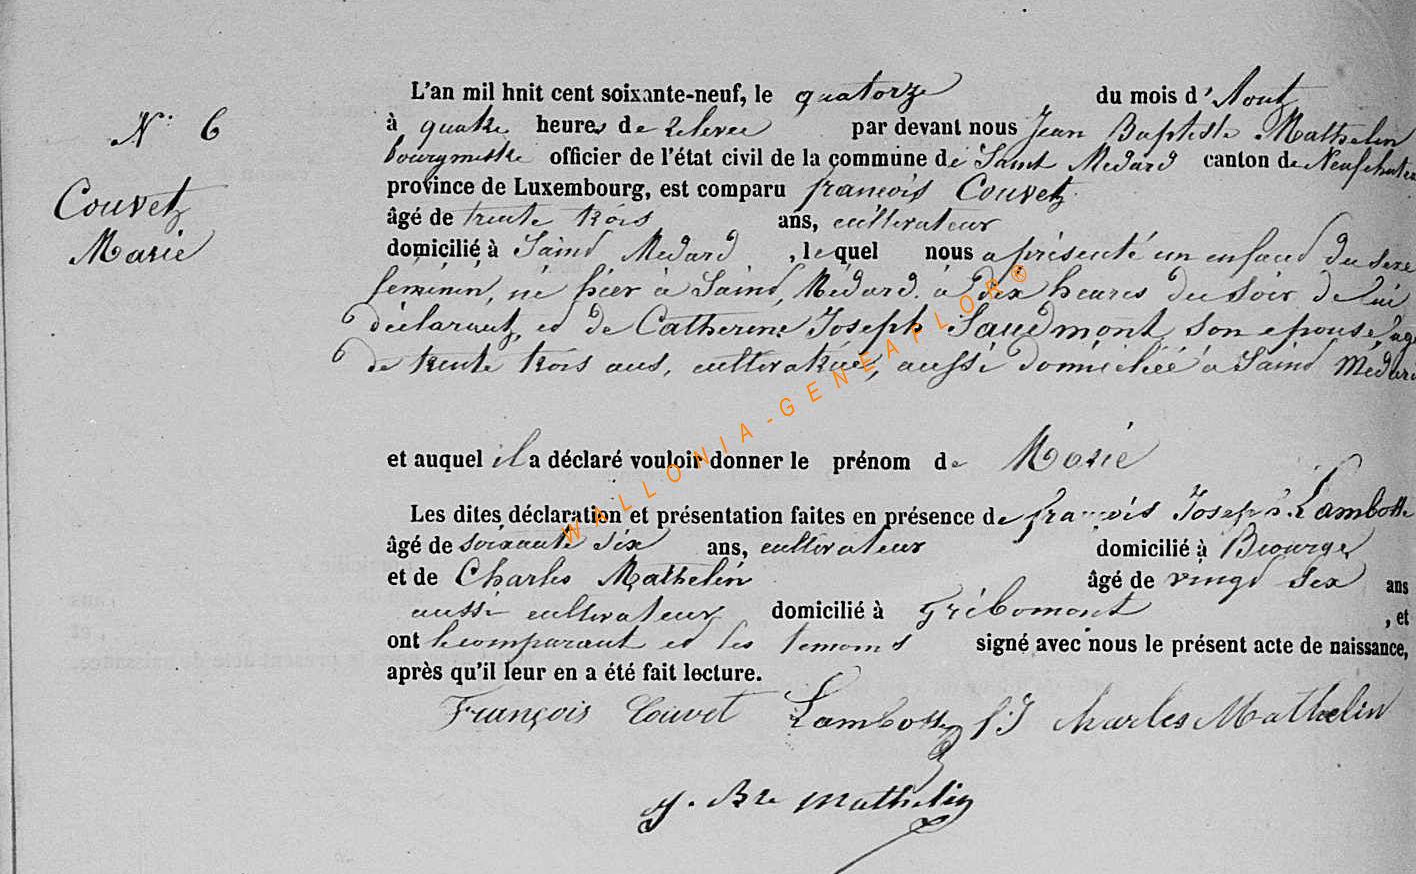 N.° 6
Couvet
Marie
L'an mil hnit cent soixante-neuf, le quatorze du mois d'Aout
à quatre heures de relevée par devant nous Jean Baptiste Mathelin
bourgmestre officier de l'état civil de la commune de Saint Medard canton de Neufchateau
province de Luxembourg, est comparu françois Couvet
âgé de trente trois ans, cultivateur
domicilié à Saint Medard, lequel nous a présenté un enfant du sexe
féminin, né hier à Saint Médard à dix heures du soir de lui
déclarant, et de Catherine Joseph Saudmont, son epouse, agé
de trente trois ans, cultivatrice, aussi domiciliée à Saint Médard
et auquel il a déclaré vouloir donner le prénom de Marie
Les dites déclaration et présentation faites en présence de françois Joseph Lambotte
âgé de soixante six ans, cultivateur domicilié à Biourge
et de Charles Mathelin âgé de vingt six ans
aussi cultivateur domicilié à Gribomont, et
ont le comparant et les temoins signé avec nous le présent acte de naissance,
après qu'il leur en a été fait lecture.
François Couvet Lambotte f:J Charles Mathelin
J. Bte Mathelin
WALLONIA-GENEAFLOR®